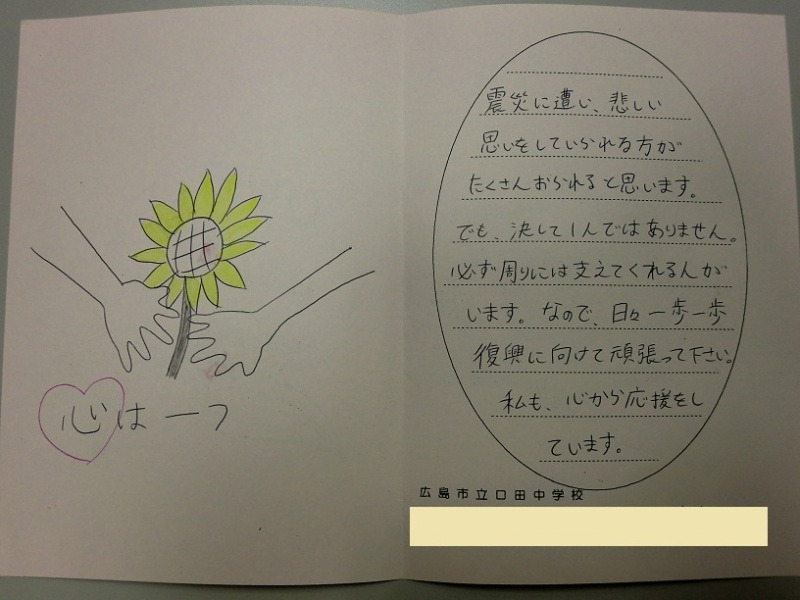 心は一つ
震災に遭い、悲しい
思いをしていられる方が
たくさんおられると思います。
でも、決して1人ではありません。
必ず周りには支えてくれる人が
います。なので、日々一歩一歩
復興に向けて頑張って下さい。
私も、心から応援をし
ています。
広島市立口田中学校